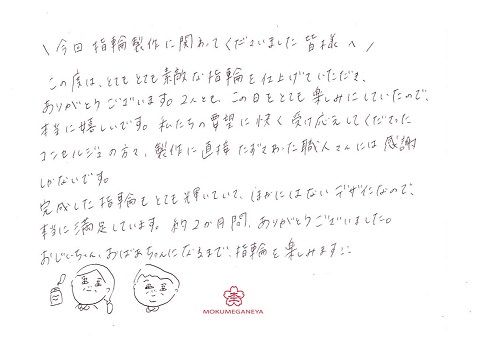 \ 今回 指輪製作に関わってくださいました 皆様へ /
この度は、とてもとても素敵な指輪を仕上げていただき、
ありがとうございます。2人とも、この日をとても楽しみにしていたので、
本当に嬉しいです。私たちの要望に快く受け応えしてくださった
コンセルジュの方々、製作に直接たずさわった職人さんには感謝
しかないです。
完成した指輪もとても輝いていて、ほかにはないデザインなので、
本当に満足しています。約2か月間、ありがとうございました。
おじいちゃん、おばあちゃんになるまで、指輪を楽しみます:-
MOKUMEGANEYA